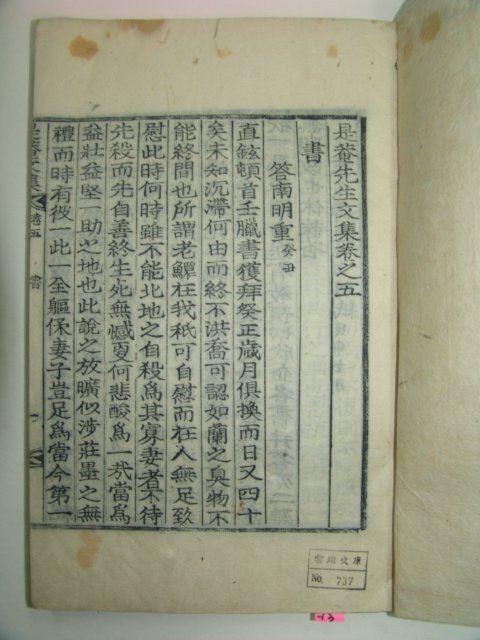 是菴先生文集卷之五
書
答南明重 癸丑
直鉉頓首壬臘書獲拜癸正歲月俱換而日又四十
矣未知沉滯何由而終不洪喬可認如蘭之臭物不
能終間也所謂老鱓在我秪可自慰而在人無足致
慰此時何時雖不能北地之自殺爲其寡妻者不待
先殺而先自善終生死無憾夏何悲酸爲一哭當爲
益壯益堅一助之地也此說之放曠似涉莊墨之無
禮而時有彼一此一全軀保妻子豈足爲當今第一
是菴文集
卷五
書
一
雲川文庫
No. 737